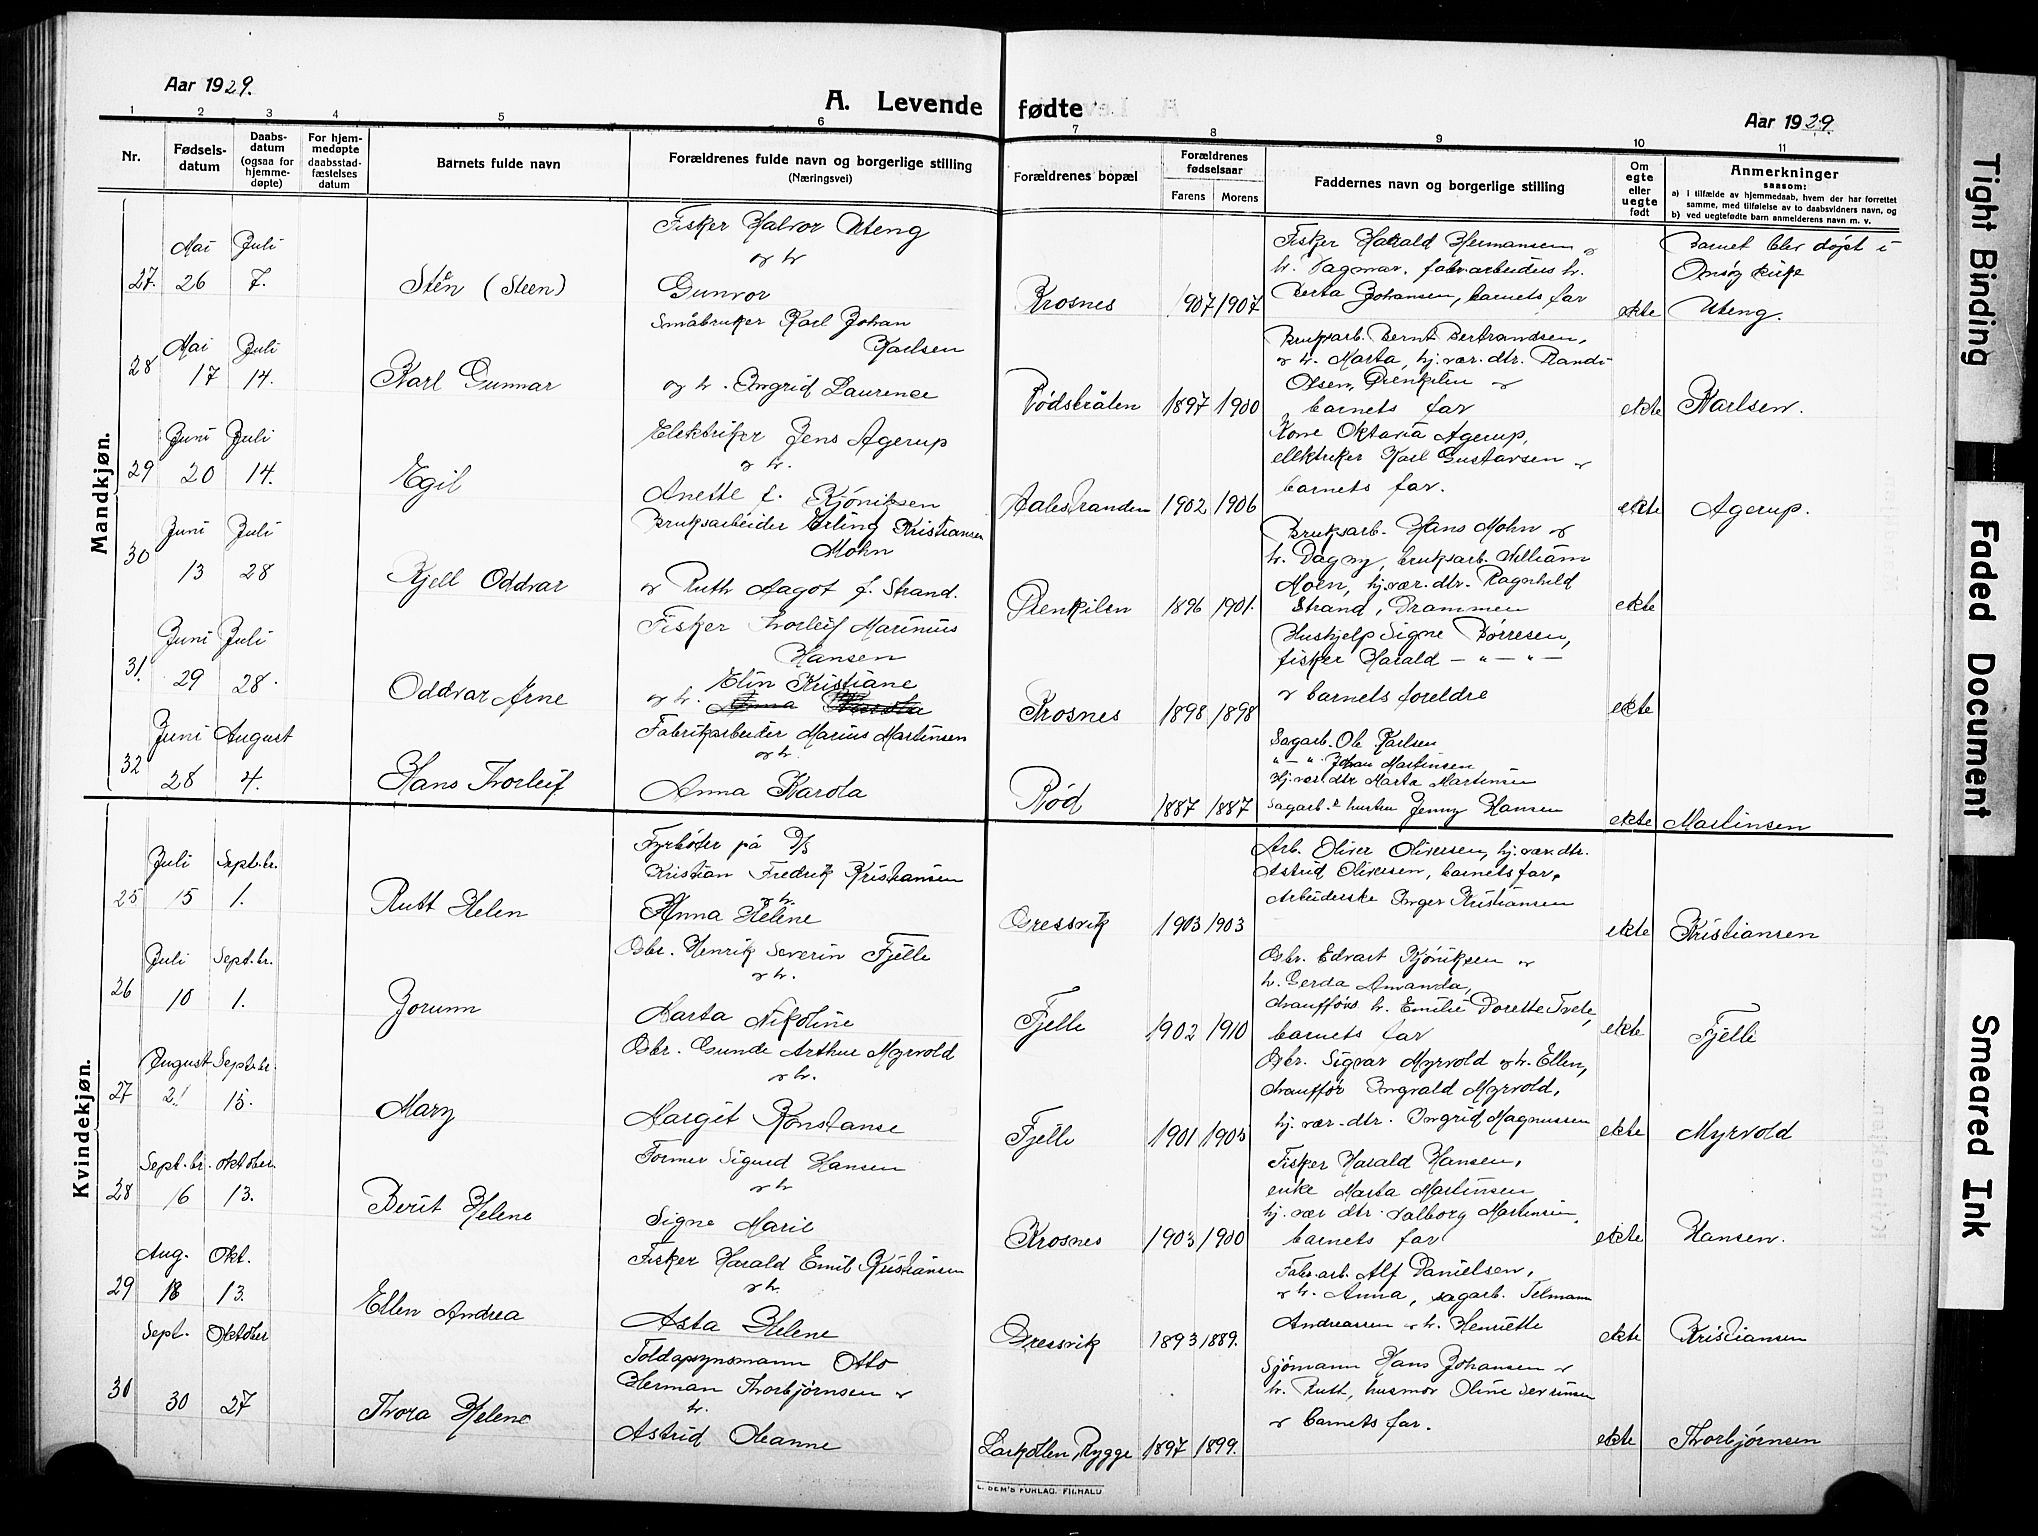 Aar 1929.
A. Levende fødte
Aar 1929.
1 2 3 4 5 6 7 8 9 10 11
Nr.
Fødsels-
datum
Daabs-
datum
(ogsaa for
hjemme-
døpte)
For hjem-
medøpte
daabsstad-
fæstelses
datum
Barnets fulde navn
Forældrenes fulde navn og borgerlige stilling
(Næringsvei)
Forældrenes bopæl
Forældrenes
fødselsaar
Farens Morens
Faddernes navn og borgerlige stilling
Om
egte
eller
uegte
født
Anmerkninger
saasom:
a) i tilfælde av hjemmedaab, hvem der har forrettet
samme, med tilføielse av to daabsvidners navn, og
b) ved uegtefødte barn anmelderens navn m. v.
Mandkjøn.
27. Mai 26 Juli 7. Stén (Steen)
Fisker Halvor Uteng
og h
Gunvor
Krosnes 1907 1907
Fisker Harald Hermansen og
h. Dagmar, fabr.arbeiders h.
Berta Johansen, barnets far
ekte
Barnet blev døpt i
Onsøy kirke
Uteng.
28 Mai 17 Juli 14. Karl Gunnar
Småbruker Karl Johan
Karlsen
og h. Ingrid Laurence
Rödsbråten 1897 1900
Bruksarb. Bernt Bertrandsen,
og h. Marta, hj.vær. dtr. Randi
Olsen, Dienkilen og
barnets far
ekte Karlsen.
29 Juni 20 Juli 14. Egil
Elektriker Jens Agerup
og h.
Anette f. Kjöniksen
Aalestranden 1902 1906
Kone Oktavia Agerup,
elektriker Karl Gustavsen og
barnets far.
ekte Agerup.
30 Juni 13 Juli 28 Kjell Oddvar
Bruksarbeider Erling Kristiansen
Mohn
og Ruth Aagot f. Strand.
Dienkilen 1896 1901.
Bruksarb. Hans Mohn og
h. Dagny, bruksarb. William
Moen, hj.vær. dtr. Ragnhild
Strand, Drammen
ekte
31. Juni 29 Juli 28. Oddvar Arne
Fisker Thorleif Marinius
Hansen
Elin Kristiane
og h.
Krosnes 1898 1898
Hushjelp Signe Börresen,
fisker Harald — " — " —
og barnets foreldre
ekte
32 Juni 28 August 4. Hans Thorleif
Fabrikarbeider Marius Martinsen
og h.
Anna Karola
Röd 1887 1887
Sagarb. Ole Karlsen
" — " Johan Martinsen
Hj.vær dtr Marta Martinsen
Sagarb.s hustru Jenny Hansen
ekte Martinsen
Kvindekjøn.
25 Juli 15 Sept.br. 1. Rutt Helen
Fyrböter på D/S
Kristian Fredrik Kristiansen
og h.
Anna Helene
Gressvik 1903 1903
Arb. Oliver Oliversen, hj.vær. dtr.
Astrid Oliversen, barnets far,
Arbeiderske Inger Kristiansen
ekte Kristiansen
26 Juli 10 Sept.br. 1. Jorunn
Gsbr. Henrik Severin Fjelle
og h.
Marta Nikoline
Fjelle 1902 1910
Gsbr. Edvart Kjöniksen og
h. Gerda Amanda,
chaufförs h. Emilie Dorette Tvete,
barnets far
ekte Fjelle
27 August 21 Sept.br. 15. Mary
Gsbr. Gunde Arthur Myrvold
og h.
Margit Konstanse
Fjelle 1901 1905
Gsbr. Sigvar Myrvold og h. Ellen,
chaufför Ingvald Myrvold,
hj. vær. dtr. Ingrid Magnussen
ekte Myrvold
28 Sept.br. 16 Oktober 13. Berit Helene
Former Sigurd Hansen
og h
Signe Marie
Krosnes 1903 1900
Fisker Harald Hansen,
enke Marta Martinsen
hj. vær dtr. Valborg Martinsen,
barnets far
ekte Hansen.
29 Aug. 18 Okt. 13. Ellen Andrea
Fisker Harald Emil Kristiansen
og h.
Asta Helene
Gressvik 1893 1889.
Fabr.arb. Alf Danielsen,
og h. Anna, sagarb. Telmann
Andreassen og h. Henriette
ekte Kristiansen
30 Sept. 30 Oktober 27 Thora Helene
Toldopsynsmann Otto
Herman Thorbjørnsen og
h.
Astrid Oleanne
Larkollen, Rygge 1897 1899.
Sjømann Hans Johansen og
h. Ruth, husmor Oline Severinsen
og barnets far.
ekte Thorbjørnsen
Tight Binding
Faded Document
Smeared Ink